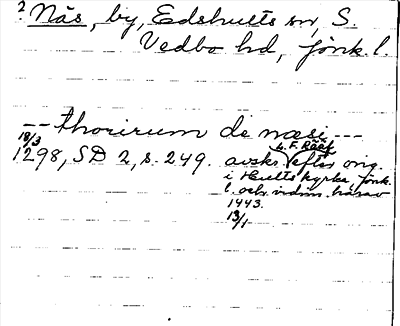 ? Näs, by, Edshults sn, S.
Vedbo hd, Jönk. l.
-- thorirum de næsi ---
18/3
1298, SD 2, s. 249. avskr. efter orig.
L. F. Rääf
i Hults kyrka, Jönk.
l. och vidim. härav
1443.
13/1